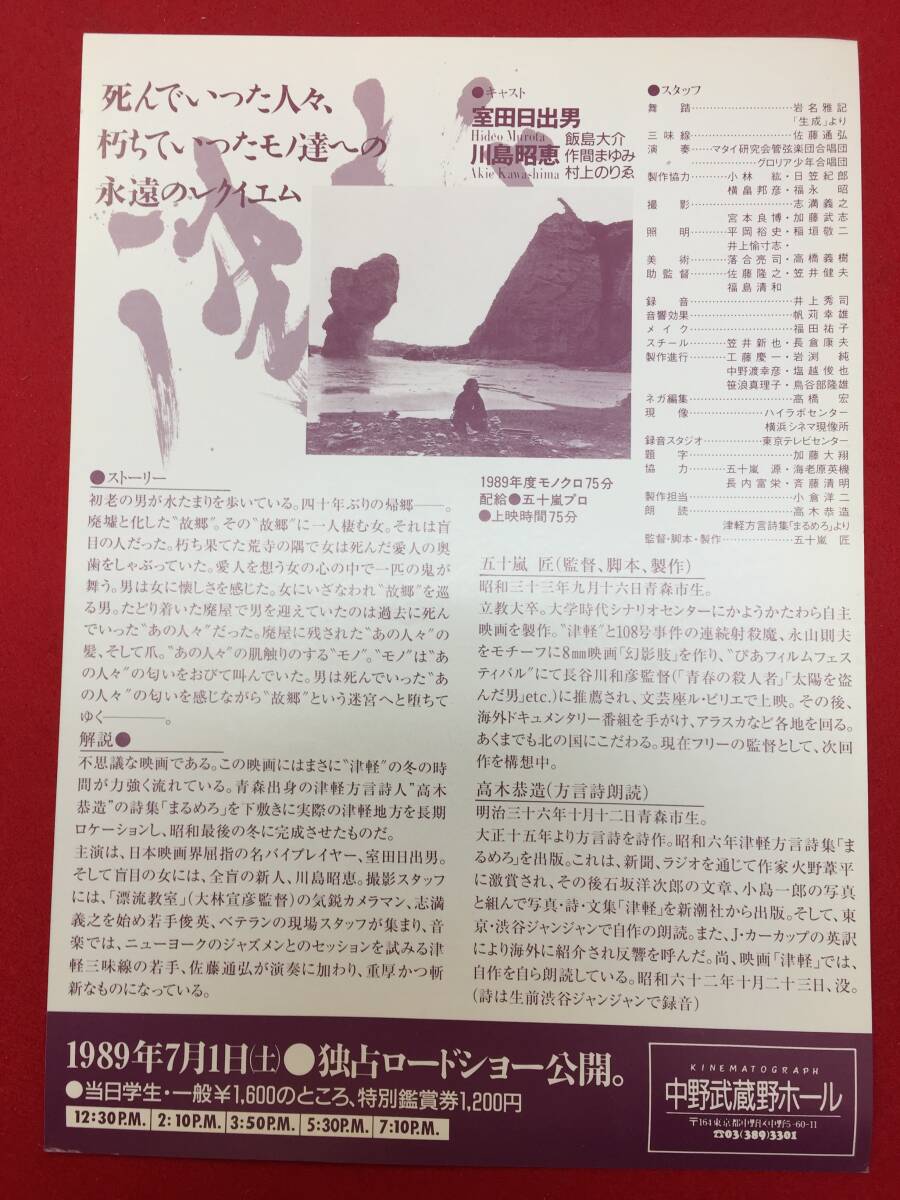 死んでいった人々、
朽ちていったモノ達への
永遠のレクイエム
●キャスト
室田日出男
Hideo Murota
川島昭恵
Akie Kawashima
飯島大介
作間まゆみ
村上のりゑ
●スタッフ
舞踏……岩名雅記
「生成」より
三味線……佐藤通弘
演奏……マタイ研究会管弦楽団合唱団
グロリア少年合唱団
製作協力……小林 紘・日笠紀郎
横畠邦彦・福永 昭
撮影……志満義之
宮本良博・加藤武志
照明……平岡裕史・稲垣敬二
井上愉寸志・
美術……落合亮司・高橋義樹
助監督……佐藤隆之・笠井健夫
福島清和
録音……井上秀司
音響効果……帆苅幸雄
メイク……福田祐子
スチール……笠井新也・長倉康夫
製作進行……工藤慶一・岩渕 純
中野渡幸彦・塩越俊也
笹浪真理子・鳥谷部隆雄
ネガ編集……高橋 宏
現像……ハイラボセンター
横浜シネマ現像所
録音スタジオ……東京テレビセンター
題字……加藤大翔
協力……五十嵐 源・海老原英機
長内富栄・斉藤清明
製作担当……小倉洋二
朗読……高木恭造
津軽方言詩集「まるめろ」より
監督・脚本・製作……五十嵐 匠
1989年度モノクロ75分
配給●五十嵐プロ
●上映時間75分
●ストーリー
初老の男が水たまりを歩いている。四十年ぶりの帰郷――。
廃墟と化した“故郷”。その“故郷”に一人棲む女。それは盲
目の人だった。朽ち果てた荒寺の隅で女は死んだ愛人の奥
歯をしゃぶっていた。愛人を想う女の心の中で一匹の鬼が
舞う。男は女に懐しさを感じた。女にいざなわれ“故郷”を巡
る男。たどり着いた廃屋で男を迎えていたのは過去に死ん
でいった“あの人々”だった。廃屋に残された“あの人々”の
髪、そして爪。“あの人々”の肌触りのする“モノ”。“モノ”は“あ
の人々”の匂いをおびて叫んでいた。男は死んでいった“あ
の人々”の匂いを感じながら“故郷”という迷宮へと堕ちて
ゆく――。
解説●
不思議な映画である。この映画にはまさに“津軽”の冬の時
間が力強く流れている。青森出身の津軽方言詩人“高木
恭造”の詩集「まるめろ」を下敷きに実際の津軽地方を長期
ロケーションし、昭和最後の冬に完成させたものだ。
主演は、日本映画界屈指の名バイプレイヤー、室田日出男。
そして盲目の女には、全盲の新人、川島昭恵。撮影スタッフ
には、「漂流教室」(大林宣彦監督)の気鋭カメラマン、志満
義之を始め若手俊英、ベテランの現場スタッフが集まり、音
楽では、ニューヨークのジャズメンとのセッションを試みる津
軽三味線の若手、佐藤通弘が演奏に加わり、重厚かつ斬
新なものになっている。
五十嵐 匠(監督、脚本、製作)
昭和三十三年九月十六日青森市生。
立教大卒。大学時代シナリオセンターにかようかたわら自主
映画を製作。“津軽”と108号事件の連続射殺魔、永山則夫
をモチーフに8㎜映画「幻影肢」を作り、“ぴあフィルムフェス
ティバル”にて長谷川和彦監督(「青春の殺人者」「太陽を盗
んだ男」etc.)に推薦され、文芸座ル・ピリエで上映。その後、
海外ドキュメンタリー番組を手がけ、アラスカなど各地を回る。
あくまでも北の国にこだわる。現在フリーの監督として、次回
作を構想中。
高木恭造(方言詩朗読)
明治三十六年十月十二日青森市生。
大正十五年より方言詩を詩作。昭和六年津軽方言詩集「ま
るめろ」を出版。これは、新聞、ラジオを通じて作家火野葦平
に激賞され、その後石坂洋次郎の文章、小島一郎の写真
と組んで写真・詩・文集「津軽」を新潮社から出版。そして、東
京・渋谷ジャンジャンで自作の朗読。また、J・カーカップの英訳
により海外に紹介され反響を呼んだ。尚、映画「津軽」では、
自作を自ら朗読している。昭和六十二年十月二十三日、没。
(詩は生前渋谷ジャンジャンで録音)
1989年7月1日(土)●独占ロードショー公開。
●当日学生・一般¥1,600のところ、特別鑑賞券1,200円
12:30P.M. 2:10P.M. 3:50P.M. 5:30P.M. 7:10P.M.
KINEMATOGRAPH
中野武蔵野ホール
〒164東京都中野区中野5-60-11
☎03(389)3301